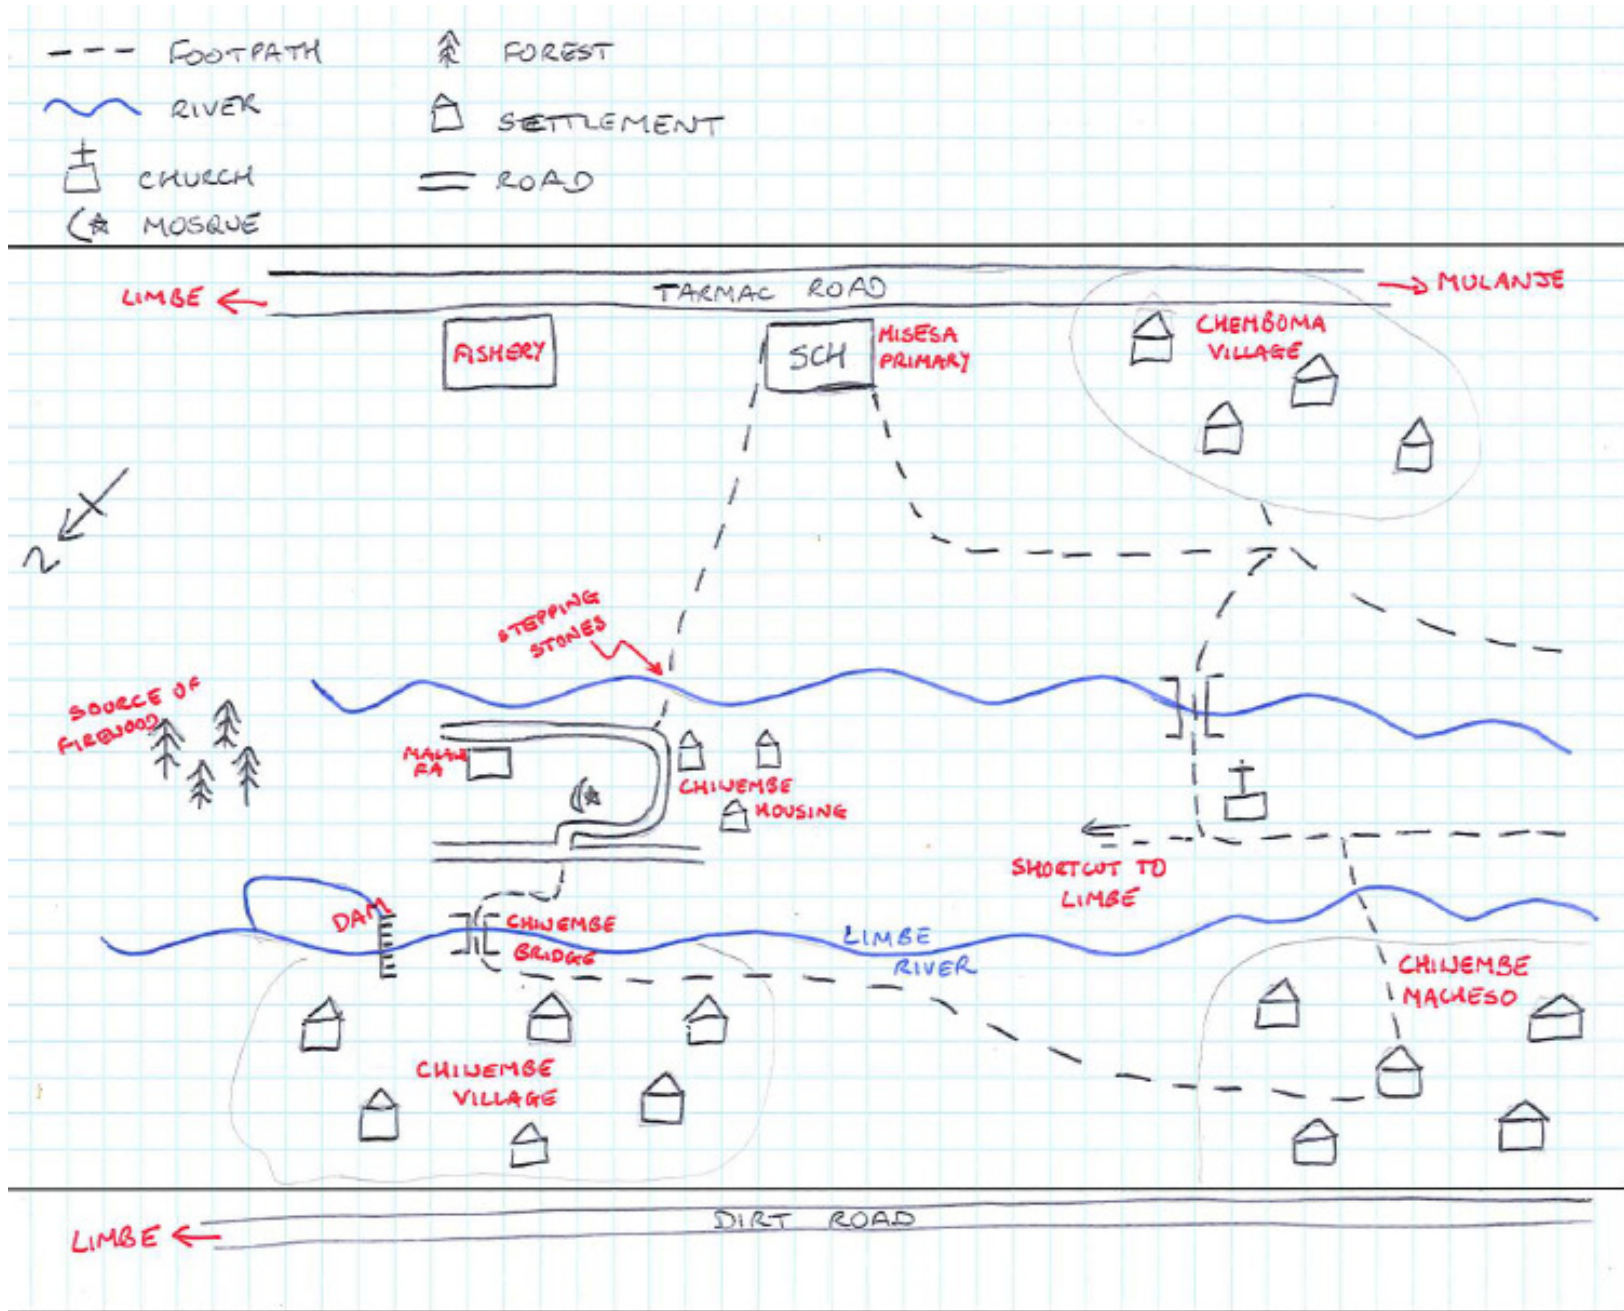 FOOTPATH
FOREST
RIVER
SETTLEMENT
CHURCH
ROAD
MOSQUE
LIMBE
TARMAC ROAD
MULANJE
FISHERY
SCH
MISESA
PRIMARY
CHEMBOMA
VILLAGE
N
STEPPING
STONES
SOURCE OF
FIREWOOD
MALAWI
FA
CHIWEMBE
HOUSING
SHORTCUT TO
LIMBE
DAM
CHIWEMBE
BRIDGE
LIMBE
RIVER
CHIWEMBE
MACHESO
CHIWEMBE
VILLAGE
DIRT ROAD
LIMBE